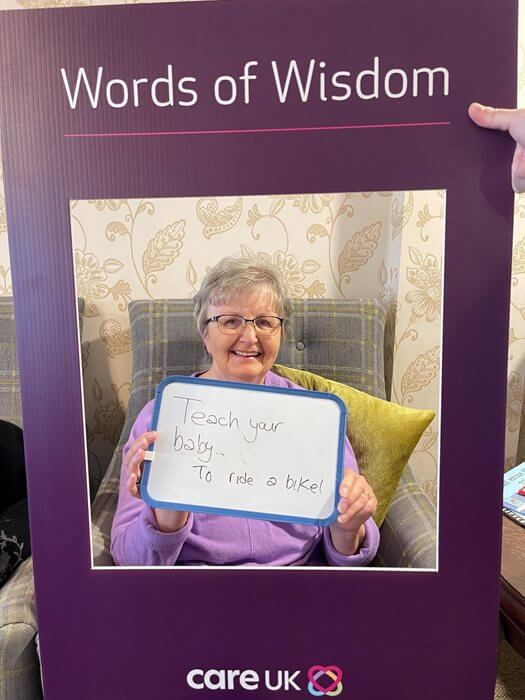 Words of Wisdom
Teach your
baby...
To ride a bike!
care UK